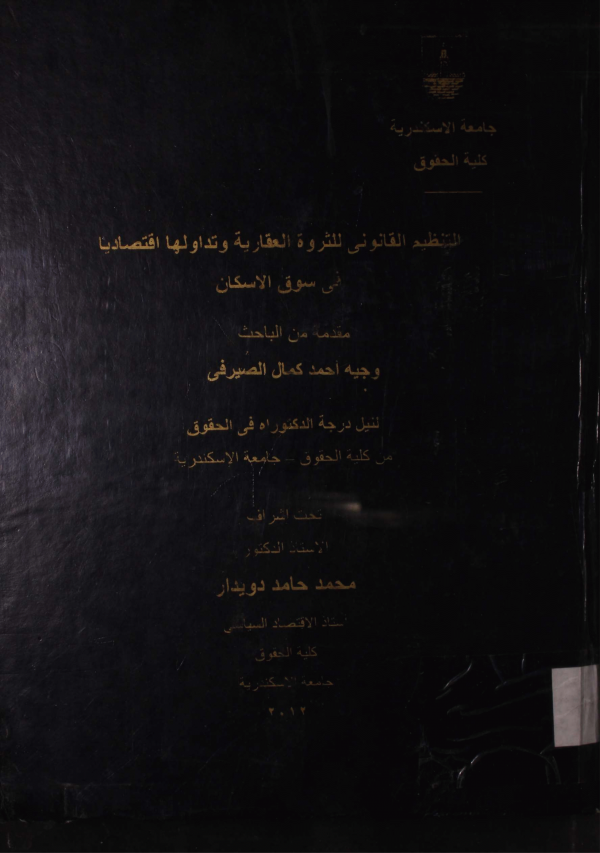 جامعة الاسكندرية
كلية الحقوق
التنظيم القانونى للثروة العقارية وتداولها اقتصاديا
فى سوق الاسكان
مقدمه من الباحث
وجيه احمد كمال الصيرفى
لنيل درجة الدكتوراه فى الحقوق
من كلية الحقوق - جامعة الاسكندرية
تحت اشراف
الاستاذ الدكتور
محمد حامد دويدار
استاذ الاقتصاد السياسي
كلية الحقوق
جامعة الاسكندرية
٢٠١٢